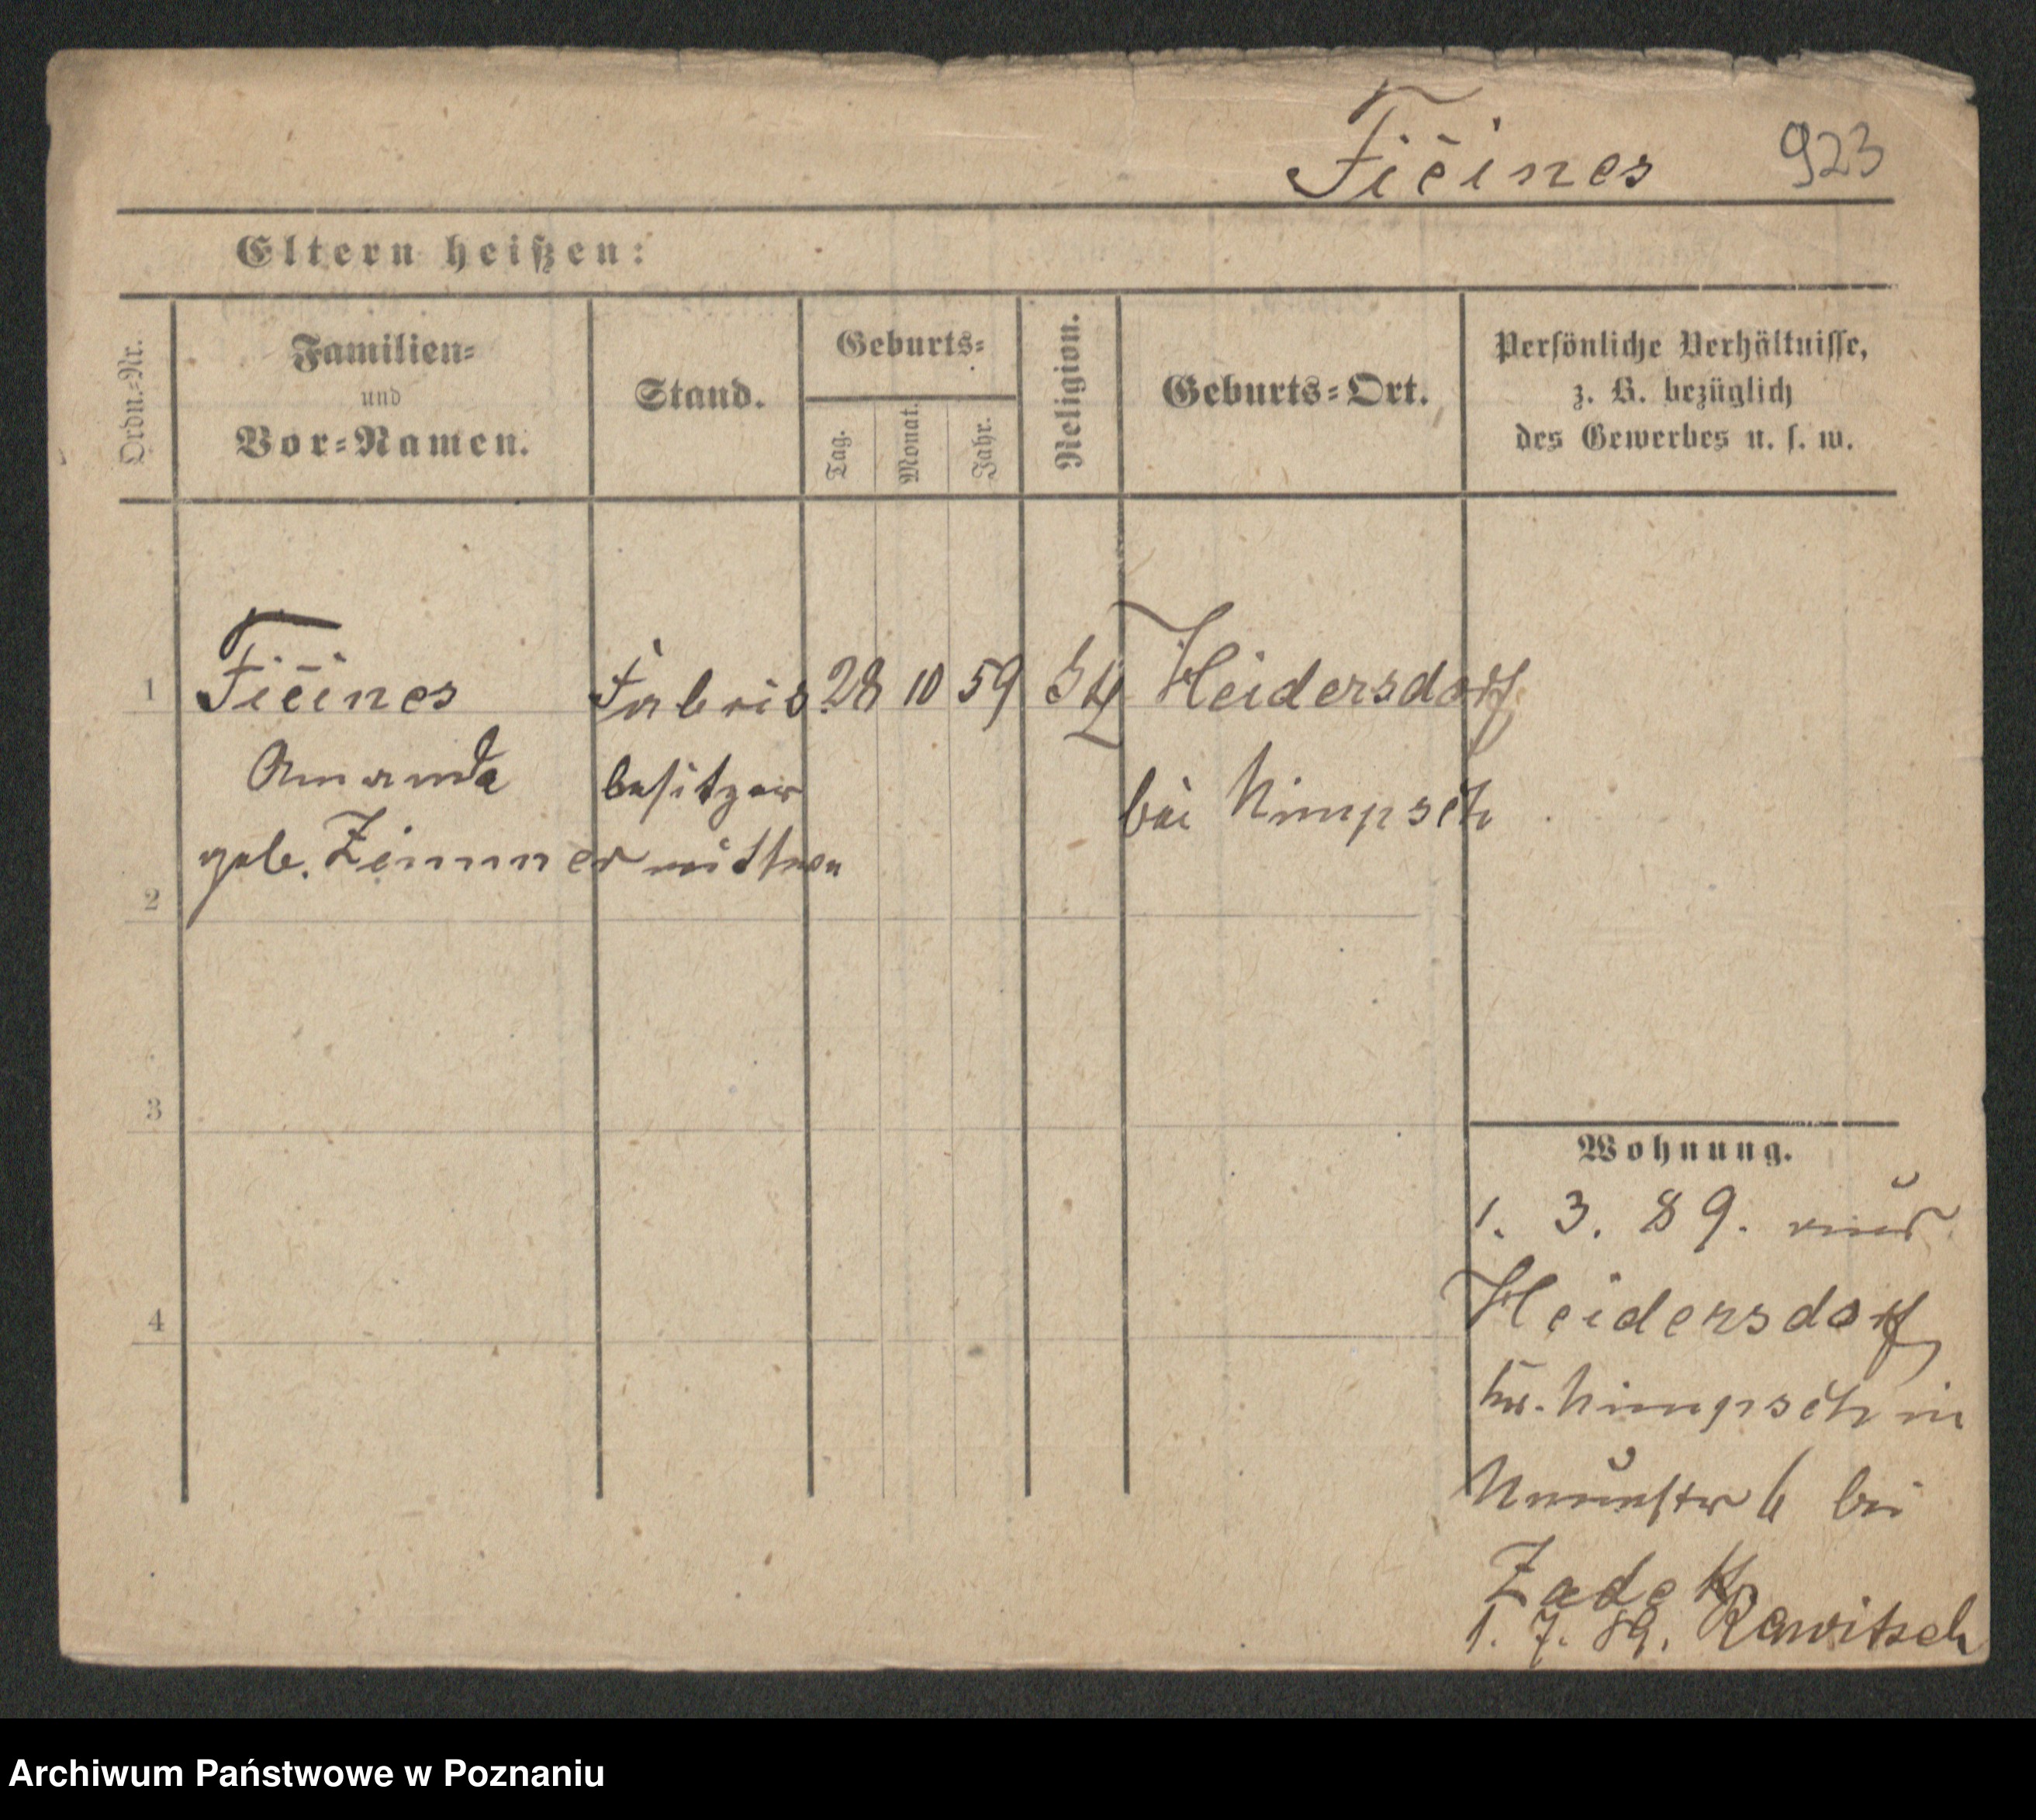 Ficines 923
Eltern heißen:
Ordn.=Nr.
Familien=
und
Vor=Namen.
Stand.
Geburts=
Tag.
Monat.
Jahr.
Religion.
Geburts=Ort.
Persönliche Verhältnisse,
z. B. bezüglich
des Gewerbes u. s. w.
1 Ficines Fabrik 28 10 59 Heidersdorf
Amanda besitzer bei Nimpsch
geb. Zimmer wittwe
2
3
4
Wohnung.
1. 3. 89. aus
Heidersdorf
Kr. Nimpsch in
6 bei
Zadek
1. 7. 89. Rawitsch
Archiwum Państwowe w Poznaniu